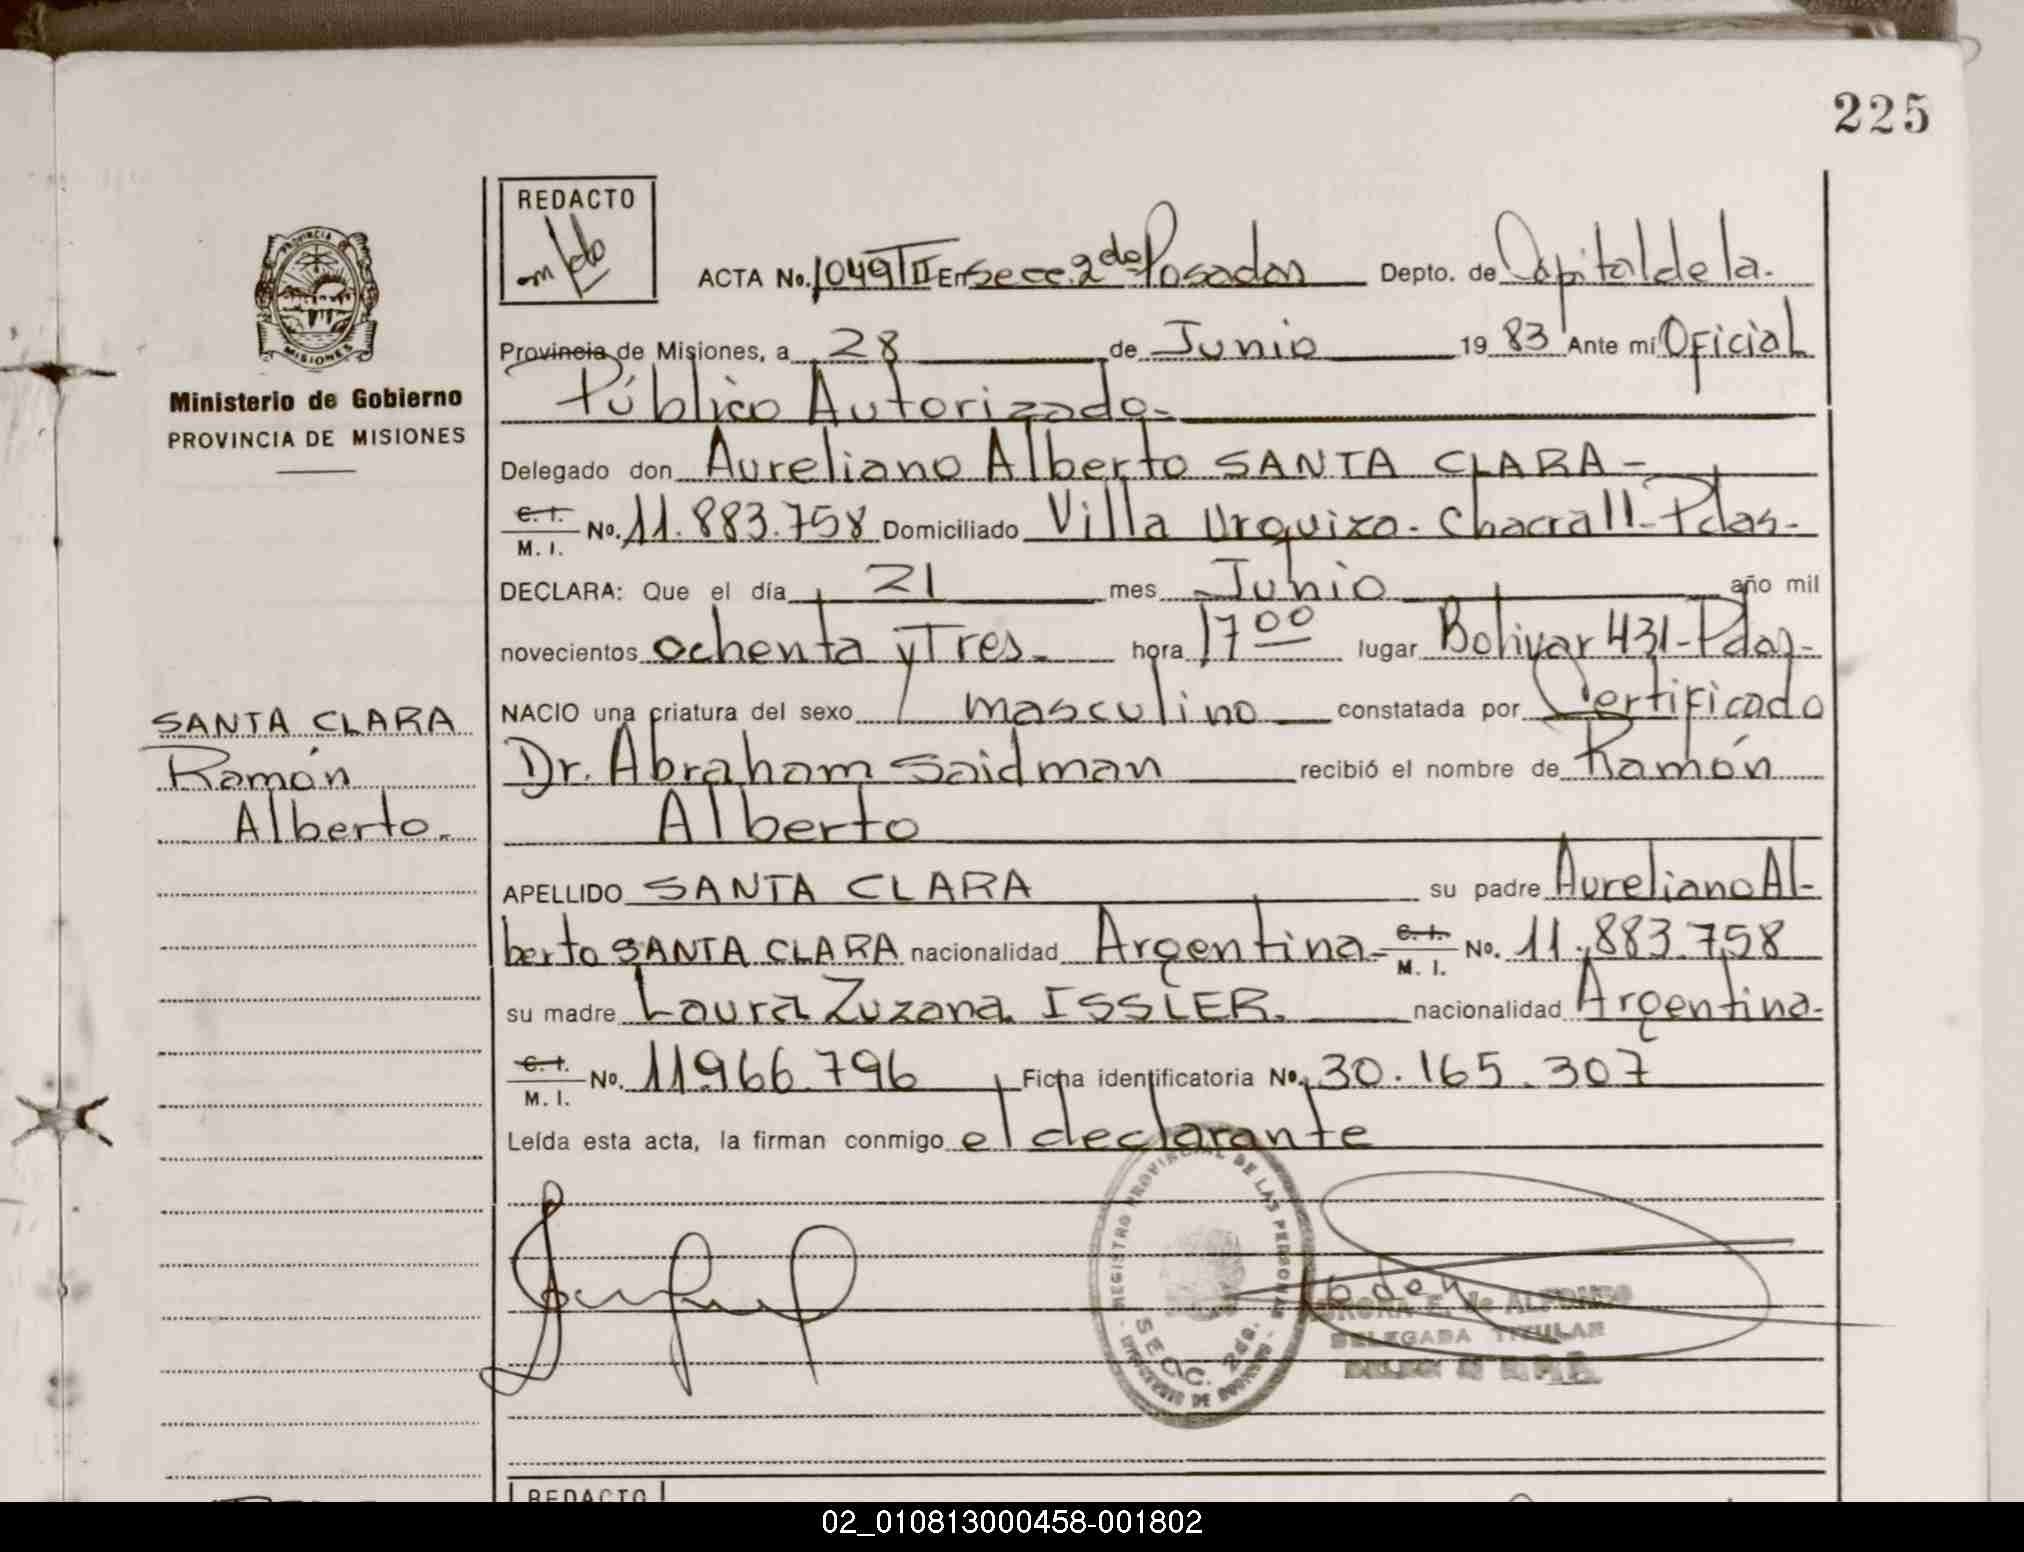 225
REDACTO
ACTA No. 1049 TII En Secc. 2da Posadas Depto. de Capital de la.
Provincia de Misiones, a 28 de Junio 19 83 Ante mí Oficial
Público Autorizado.
PROVINCIA
MISIONES
Ministerio de Gobierno
PROVINCIA DE MISIONES
Delegado don Aureliano Alberto SANTA CLARA -
C. I.
M. I. No. 11.883.758 Domiciliado Villa Urquiza - Chacra 11 - Pdas -
DECLARA: Que el día 21 mes Junio año mil
novecientos ochenta y Tres. hora 17 00 lugar Bolivar 431 - Pdas -
NACIO una criatura del sexo masculino constatada por Certificado
Dr. Abraham Saidman recibió el nombre de Ramón
Alberto
SANTA CLARA
Ramón
Alberto.
APELLIDO SANTA CLARA su padre Aureliano Al-
berto SANTA CLARA nacionalidad Argentina - C. I.
M. I. No. 11.883.758
su madre Laura Zuzana ISSLER. nacionalidad Argentina -
C. I.
M. I. No. 11.966.796 Ficha identificatoria No. 30.165.307
Leída esta acta, la firman conmigo el declarante
REGISTRO PROVINCIAL DE LAS PERSONAS
SECC. 2da.
E. de ALFONSO
DELEGADA TITULAR
REDACTO
02_010813000458-001802